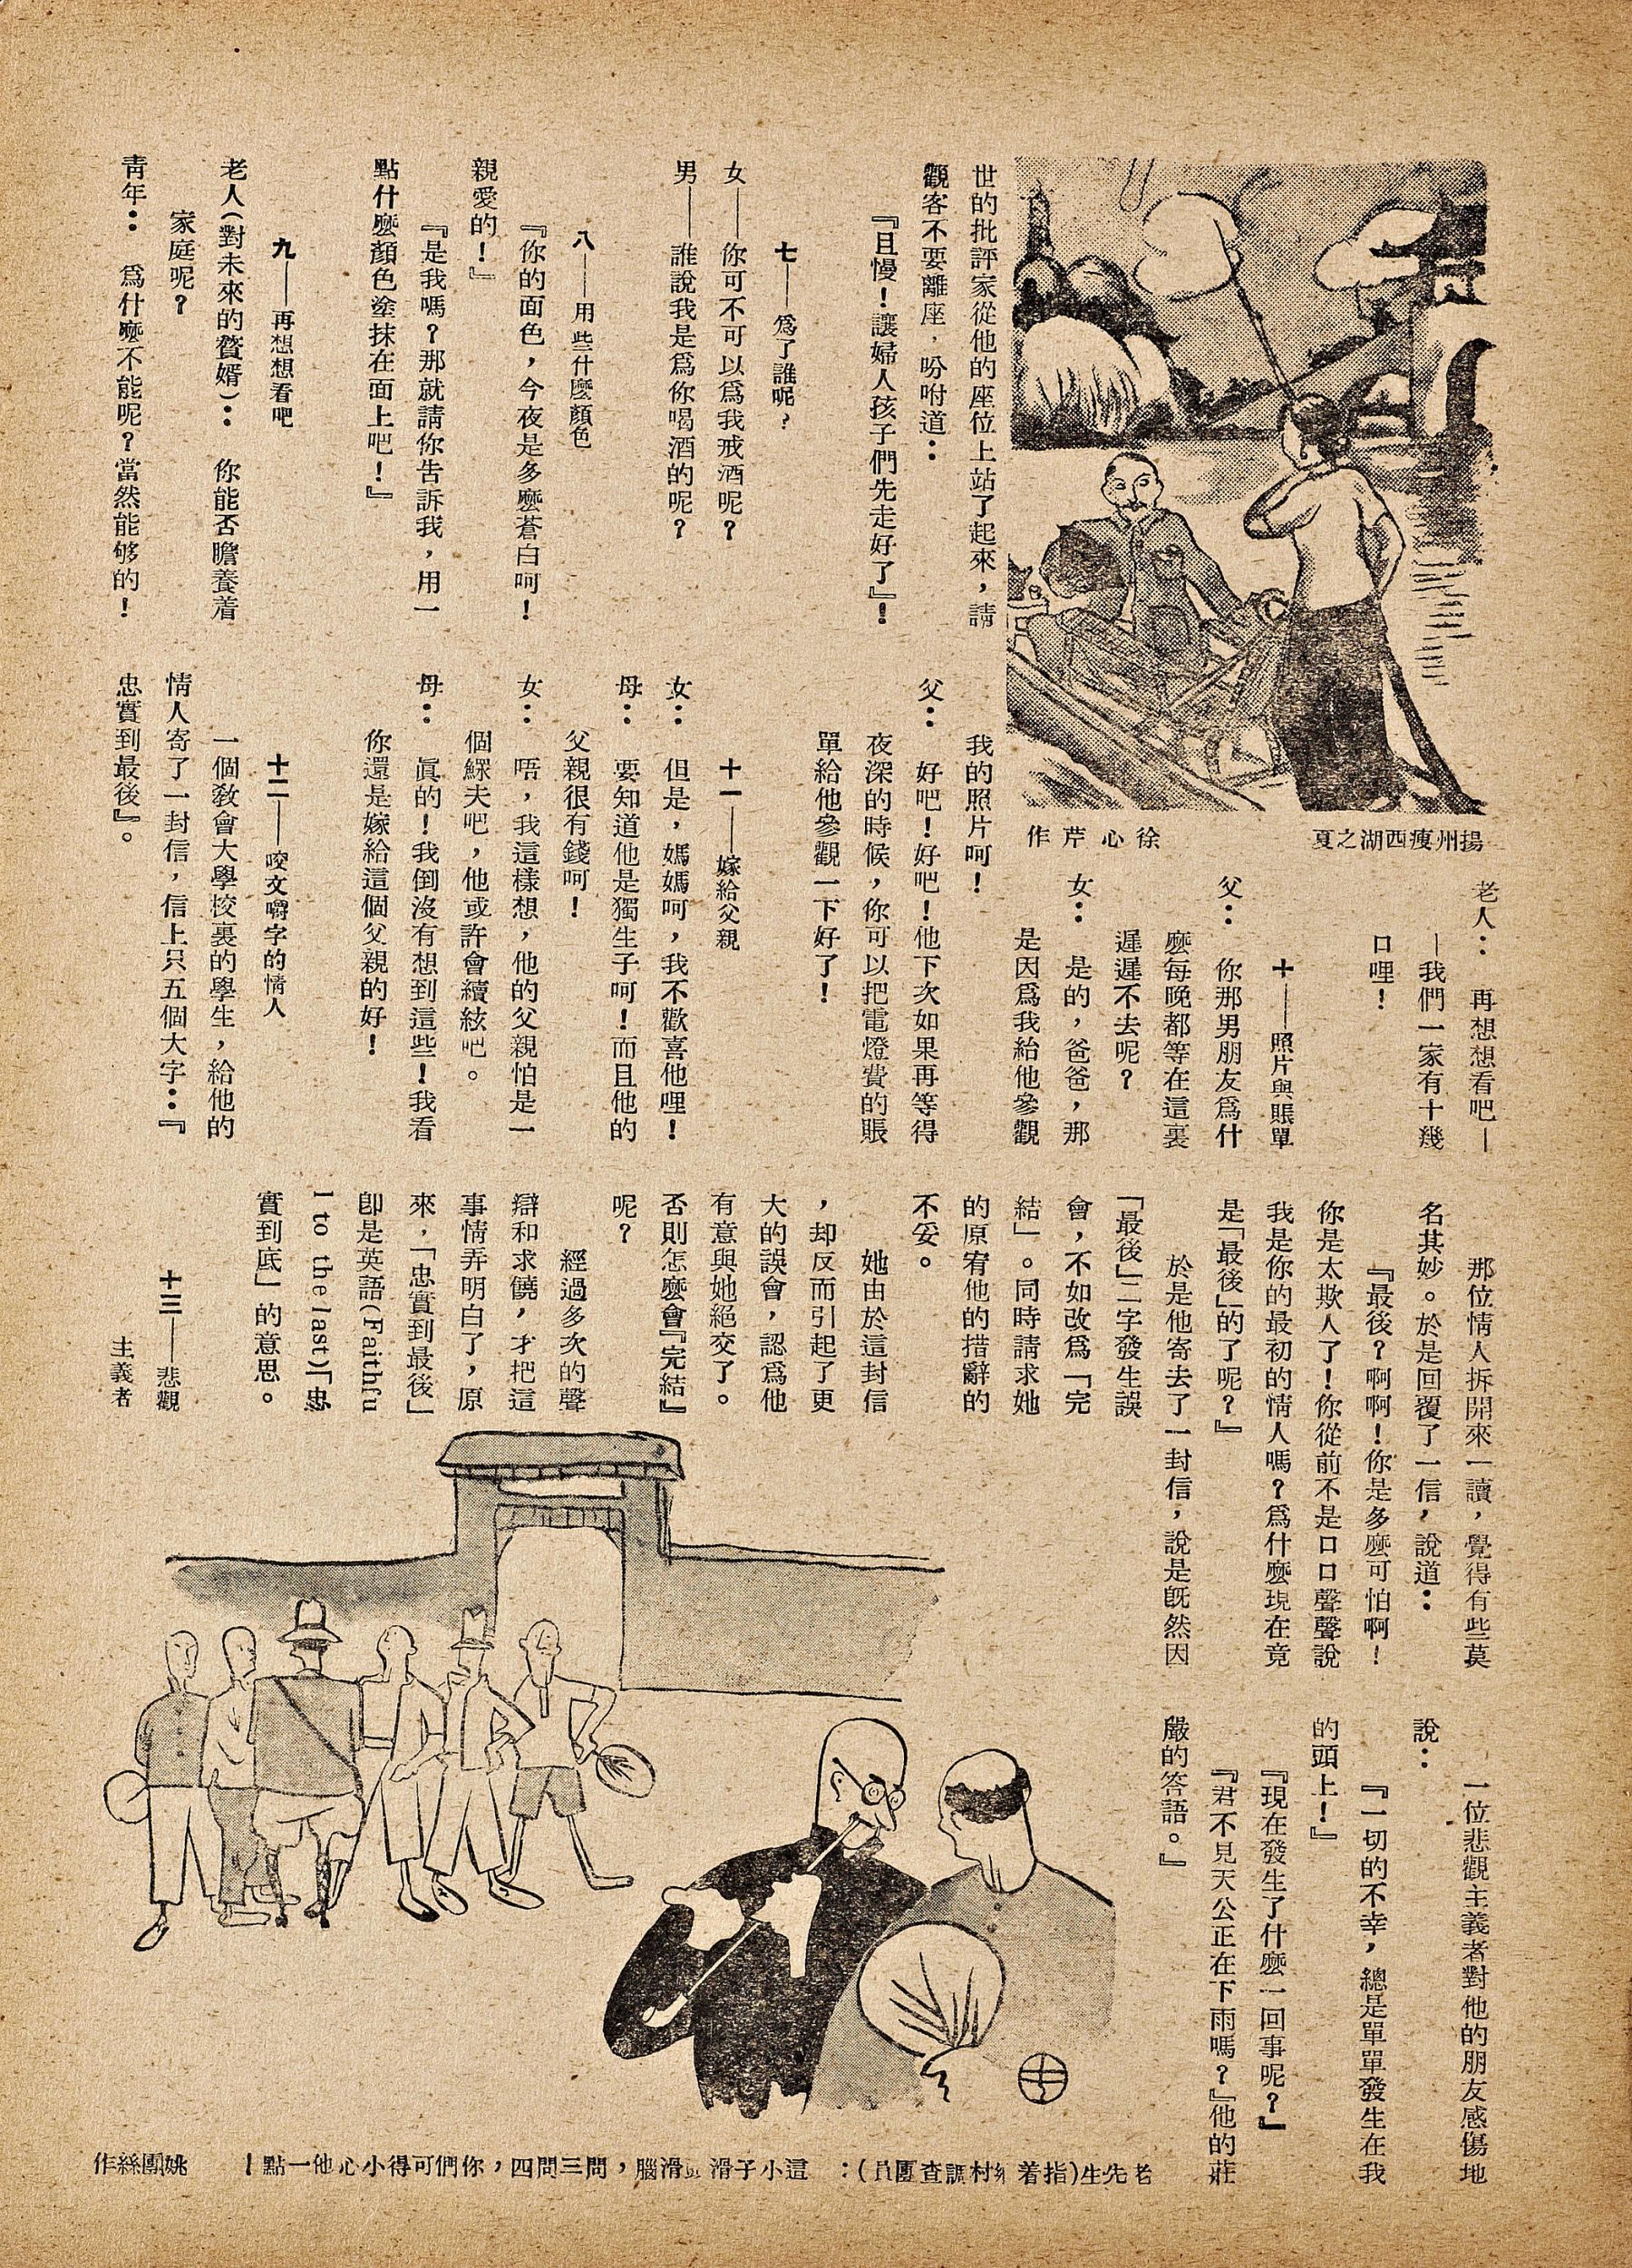 揚州瘦西湖之夏
徐心芹作
世的批評家從他的座位上站了起來，請
觀客不要離座，吩咐道：
『且慢！讓婦人孩子們先走好了』！
七——爲了誰呢？
女——你可不可以爲我戒酒呢？
男——誰說我是爲你喝酒的呢？
八——用些什麽顏色
『你的面色，今夜是多麽蒼白呵！
親愛的！』
『是我嗎？那就請你告訴我，用一
點什麽顏色塗抹在面上吧！』
九——再想想看吧
老人（對未來的贅婿）：你能否贍養着
家庭呢？
靑年：爲什麽不能呢？當然能够的！
老人：再想想看吧—
—我們一家有十幾
口哩！
十——照片與賬單
父：你那男朋友爲什
麽每晚都等在這裏
遲遲不去呢？
女：是的，爸爸，那
是因爲我給他參觀
我的照片呵！
父：好吧！好吧！他下次如果再等得
夜深的時候，你可以把電燈費的賬
單給他參觀一下好了！
十一——嫁給父親
女：但是，媽媽呵，我不歡喜他哩！
母：要知道他是獨生子呵！而且他的
父親很有錢呵！
女：唔，我這樣想，他的父親怕是一
個鰥夫吧，他或許會續絃吧。
母：眞的！我倒沒有想到這些！我看
你還是嫁給這個父親的好！
十二——咬文嚼字的情人
一個敎會大學校裏的學生，給他的
情人寄了一封信，信上只五個大字：『
忠實到最後』。
那位情人拆開來一讀，覺得有些莫
名其妙。於是回覆了一信，說道：
『最後？啊啊！你是多麽可怕啊！
你是太欺人了！你從前不是口口聲聲說
我是你的最初的情人嗎？爲什麽現在竟
是「最後」的了呢？』
於是他寄去了一封信，說是旣然因
「最後」二字發生誤
會，不如改爲「完
結」。同時請求她
的原宥他的措辭的
不妥。
她由於這封信
，却反而引起了更
大的誤會，認爲他
有意與她絕交了。
否則怎麽會『完結』
呢？
經過多次的聲
辯和求饒，才把這
事情弄明白了，原
來，「忠實到最後」
卽是英語(Faithfu
l to the last)「忠
實到底」的意思。
十三——悲觀
主義者
一位悲觀主義者對他的朋友感傷地
說：
『一切的不幸，總是單單發生在我
的頭上！』
『現在發生了什麽一回事呢？』
『君不見天公正在下雨嗎？』他的莊
嚴的答語。』
老先生（指着 村調查團員）：這小子滑 滑腦，問三問四，你們可得小心他一點！
姚團絲作